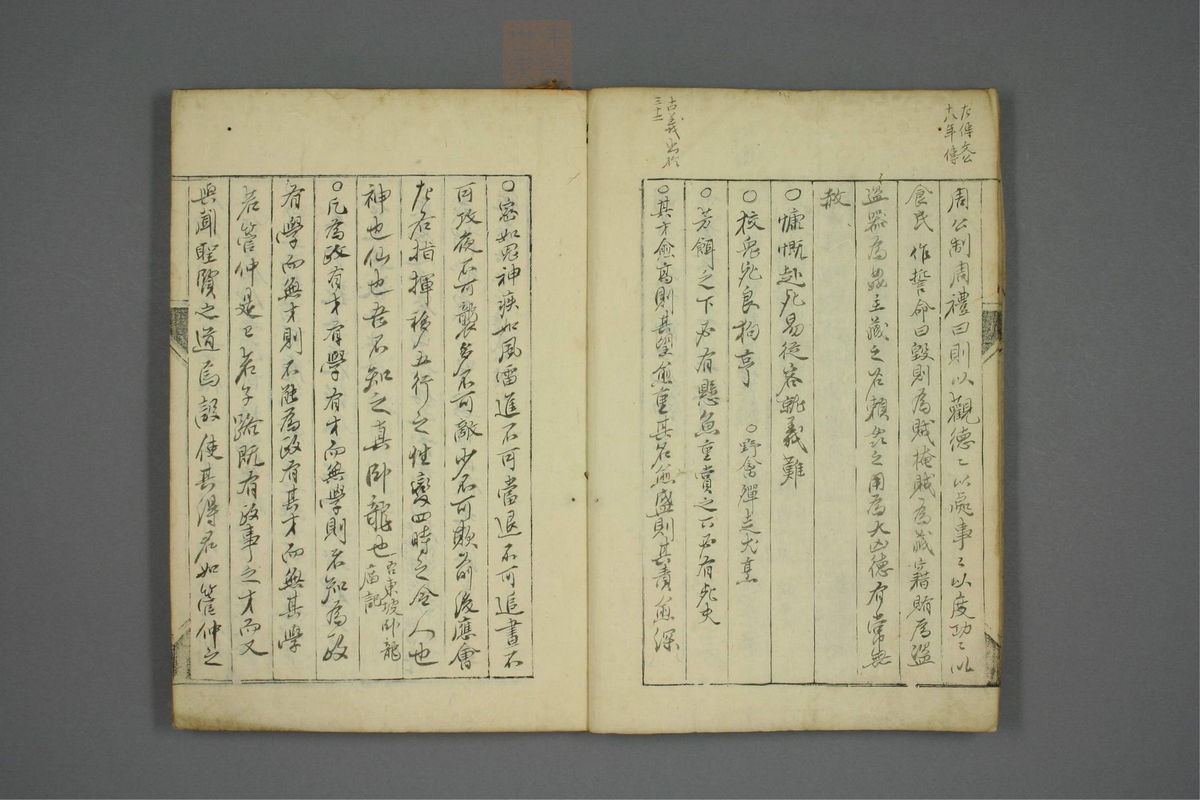 左傳文公
十八年傳
周公制周禮曰則以觀德〻以處事〻以度功〻以
食民作誓命曰毀則為賊掩賊為藏竊賄為盜
盜器為姦主藏之名賴姦之用為大凶德有常無
赦
○慷慨赴死易從容就義難
○狡兔死良狗烹
○野禽殫走犬烹
○芳餌之下必有懸魚重賞之下必有死夫
古義出於
三十二
○其才愈高則其望愈重其名愈盛則其責愈深
○密如鬼神疾如風雷進不可當退不可追晝不
可攻夜不可襲多不可敵少不可欺前後應會
左右指揮移五行之性變四時之令人也
神也仙也吾不知之真卧龍也
東坡卧龍
廟記
○凡為政有才有學有才而無學則不知為政
有學而無才則不能為政有其才而無其學
若管仲是已若子路既有政事之才而又
與聞聖賢之道焉設使其得君如管仲之